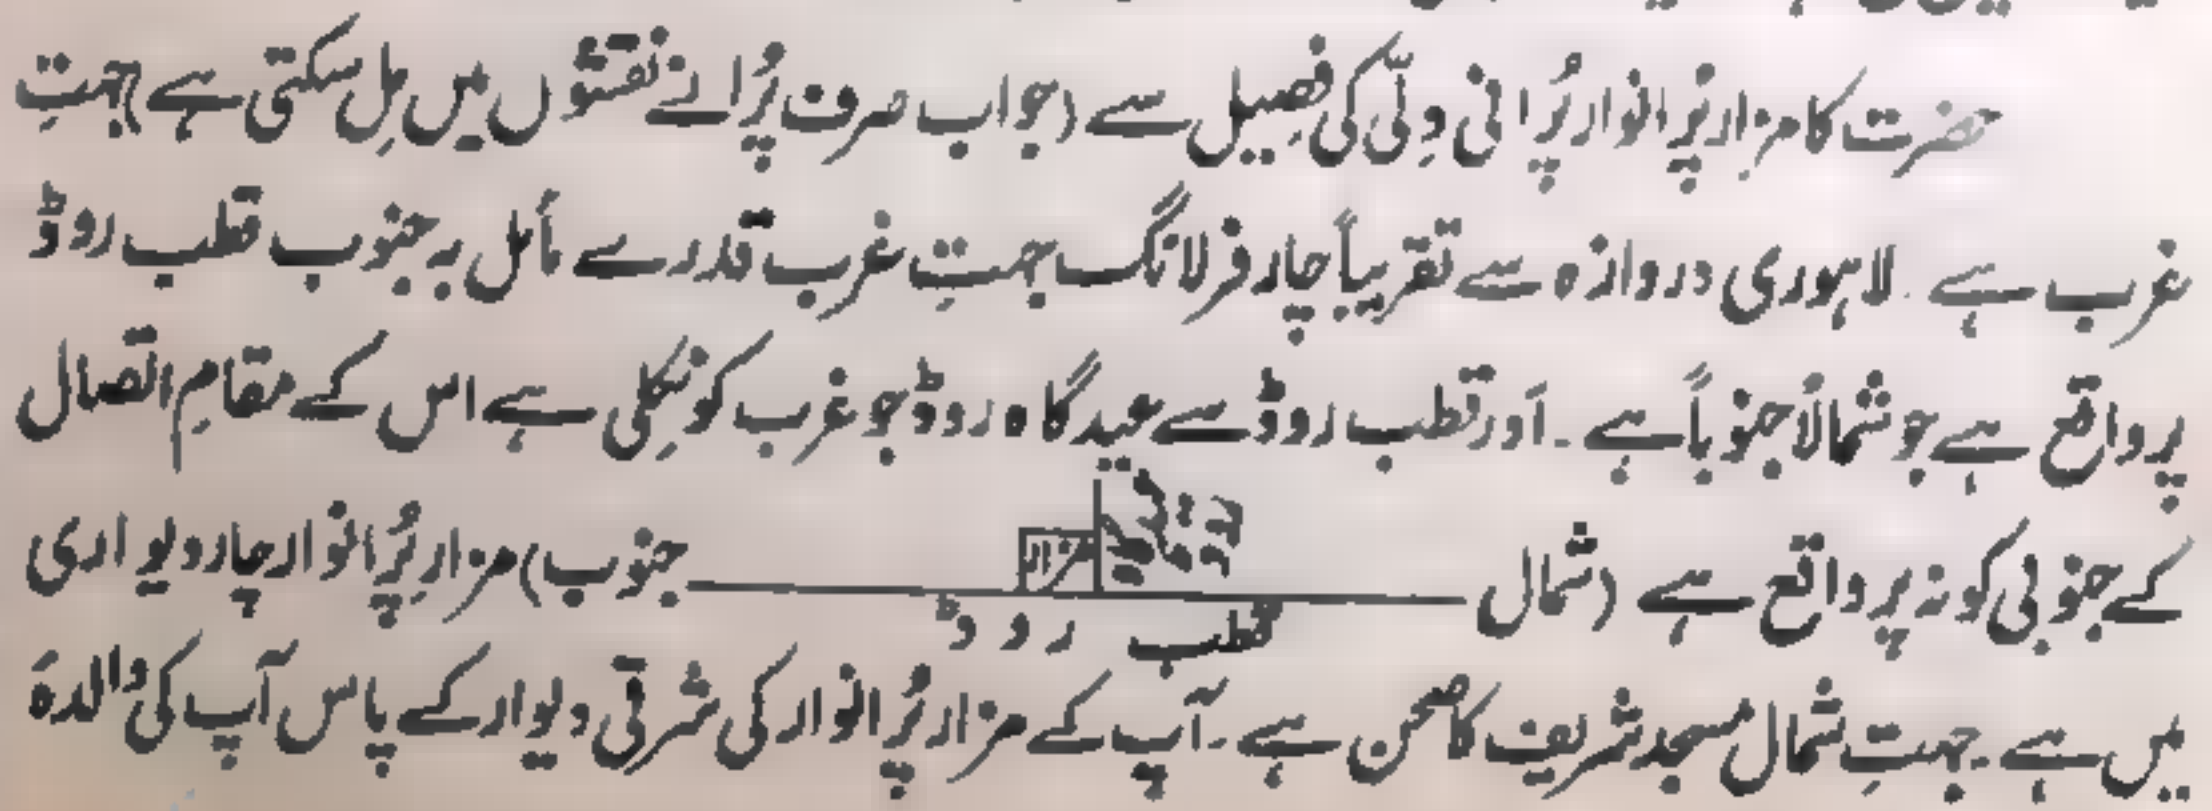 حضرت کا مزار پُر انوار پُرانی دِلّی کی فصِیل سے (جو اب صرف پُرانے نقشوں میں مِل سکتی ہے) جہتِ
غرب ہے۔ لاہوری دروازہ سے تقریباً چار فرلانگ جہتِ غرب قدرے مائل بہ جنوب قطب روڈ
پر واقع ہے جو شمالاً جنوباً ہے۔ اَور قطب روڈ سے عیدگاہ روڈ جو غرب کو نِکلی ہے اس کے مقامِ اتّصال
کے جنوبی کونہ پر واقع ہے (شمال مزار جنوب) مزارِ پُر انوار چار دیواری
قطب روڈ
میں ہے۔ جہتِ شمال مسجد شریف کا صحن ہے۔ آپ کے مزار پُر انوار کی شرقی دیوار کے پاس آپ کی والدہَ